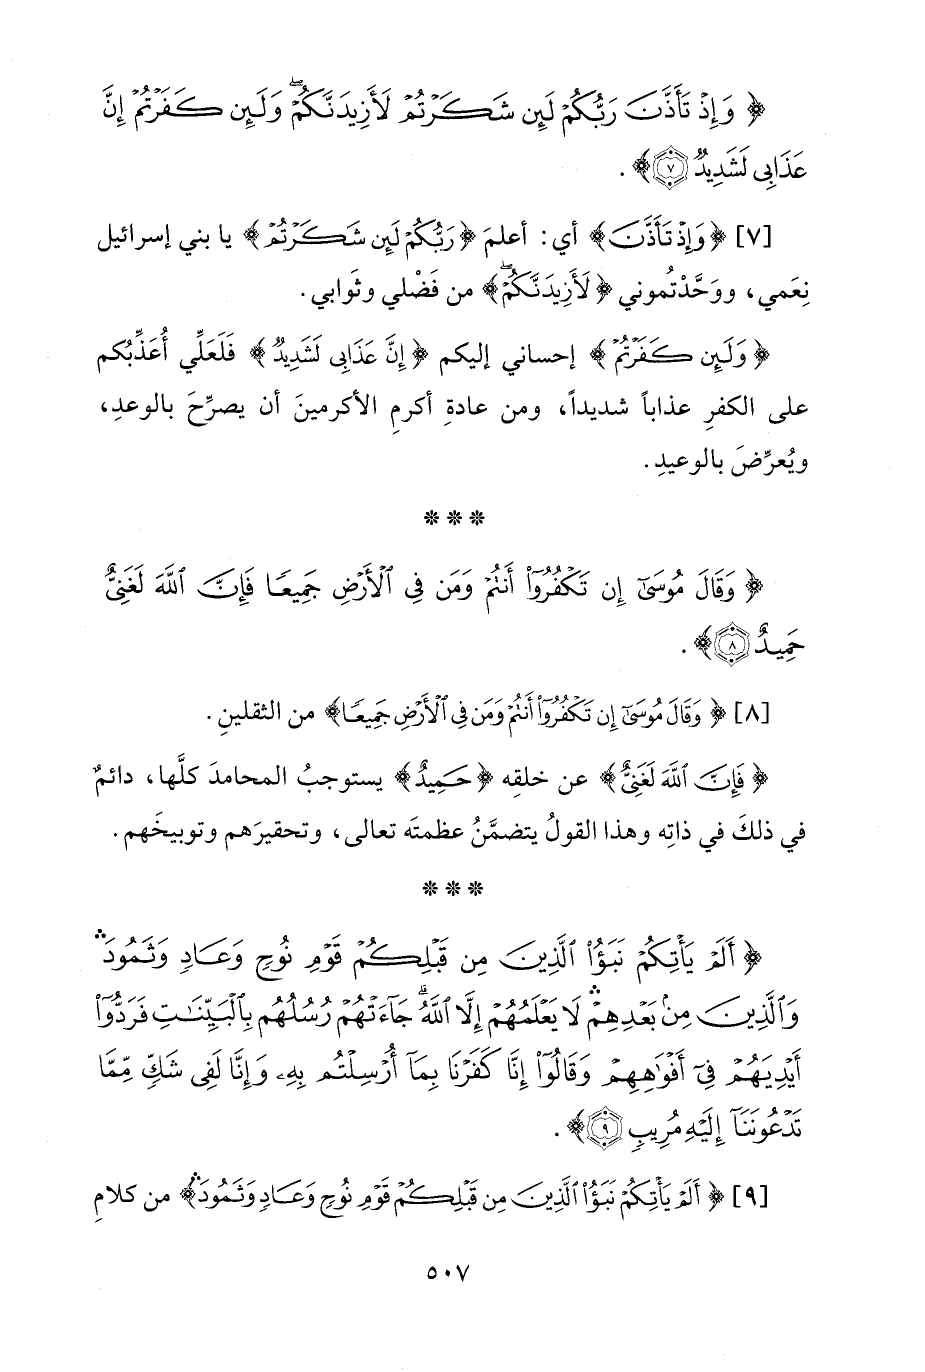 ﴿ وَإِذْ تَأَذَّنَ رَبُّكُمْ لَئِن شَكَرْتُمْ لَأَزِيدَنَّكُمْ ۖ وَلَئِن كَفَرْتُمْ إِنَّ
عَذَابِى لَشَدِيدٌ ٧﴾ .
[٧] ﴿وَإِذْ تَأَذَّنَ﴾ أي: أعلمَ ﴿رَبُّكُمْ لَئِن شَكَرْتُمْ﴾ يا بني إسرائيل
نِعَمي، ووَحَّدْتُموني ﴿لَأَزِيدَنَّكُمْ ۖ﴾ من فَضْلي وثَوابي.
﴿وَلَئِن كَفَرْتُمْ﴾ إحساني إليكم ﴿إِنَّ عَذَابِى لَشَدِيدٌ﴾ فَلَعَلِّي أُعَذِّبُكم
على الكفرِ عذاباً شديداً، ومن عادةِ أكرمِ الأكرمينَ أن يصرِّحَ بالوعدِ،
ويُعرِّضَ بالوعيدِ.
* * *
﴿ وَقَالَ مُوسَىٰٓ إِن تَكْفُرُوٓا۟ أَنتُمْ وَمَن فِى ٱلْأَرْضِ جَمِيعًا فَإِنَّ ٱللَّهَ لَغَنِىٌّ
حَمِيدٌ ٨﴾ .
[٨] ﴿ وَقَالَ مُوسَىٰٓ إِن تَكْفُرُوٓا۟ أَنتُمْ وَمَن فِى ٱلْأَرْضِ جَمِيعًا﴾ من الثقلينِ .
﴿فَإِنَّ ٱللَّهَ لَغَنِىٌّ﴾ عن خلقِه ﴿حَمِيدٌ﴾ يستوجبُ المحامدَ كلَّها، دائمٌ
في ذلكَ في ذاتِه وهذا القولُ يتضمَّنُ عظمتَه تعالى، وتحقيرَهم وتوبيخَهم.
* * *
﴿ أَلَمْ يَأْتِكُمْ نَبَؤُا۟ ٱلَّذِينَ مِن قَبْلِكُمْ قَوْمِ نُوحٍ وَعَادٍ وَثَمُودَ ۛ
وَٱلَّذِينَ مِنۢ بَعْدِهِمْ ۛ لَا يَعْلَمُهُمْ إِلَّا ٱللَّهُ ۚ جَآءَتْهُمْ رُسُلُهُم بِٱلْبَيِّنَٰتِ فَرَدُّوٓا۟
أَيْدِيَهُمْ فِىٓ أَفْوَٰهِهِمْ وَقَالُوٓا۟ إِنَّا كَفَرْنَا بِمَآ أُرْسِلْتُم بِهِۦ وَإِنَّا لَفِى شَكٍّ مِّمَّا
تَدْعُونَنَآ إِلَيْهِ مُرِيبٍ ٩﴾ .
[٩] ﴿ أَلَمْ يَأْتِكُمْ نَبَؤُا۟ ٱلَّذِينَ مِن قَبْلِكُمْ قَوْمِ نُوحٍ وَعَادٍ وَثَمُودَ ۛ﴾ من كلامِ
٥٠٧